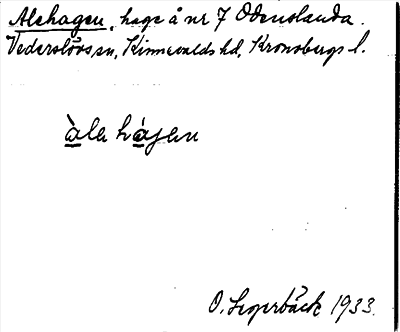 Alehagen, hage å nr 7 Odenslanda.
Vederslövs sn, Kinnevalds hd, Kronobergs l.
àle hágen
O. Lagerbäck 1933.